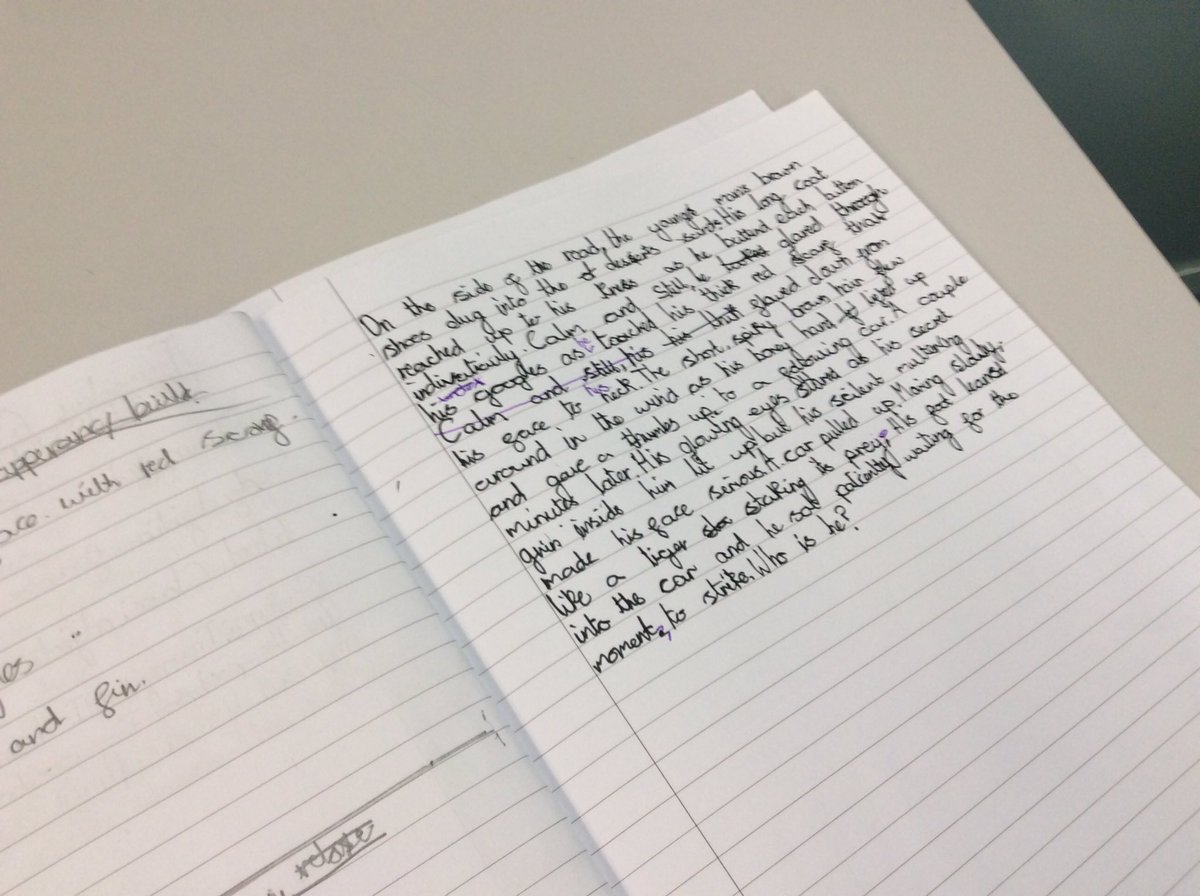 appearance/ build.
with red
and fin.
On the side of the road, the youngst mans brown
shoes dug into the of desserts sands. His long coat
reached up to his knees as he buttend each button
indiveticuly. Calm and still, he looked glared through
his googles as he toached his thick red scarg that
Calm and still, his his that glared down from
his face to his neck. The short, spiky brown hair flew
around in the wind as his boney hand lifed up
and gave a thumbs up to a petrowing car. A couple
minutes later. His glowing eyes stared as his secret
givin inside him lit up but his scilent
made his face serious. A car pulled up. Moving slowly,
like a tiger stalking its prey, His foot leansd
into the car and he sat paticntly waiting for the
moment, to strike. Who is he?